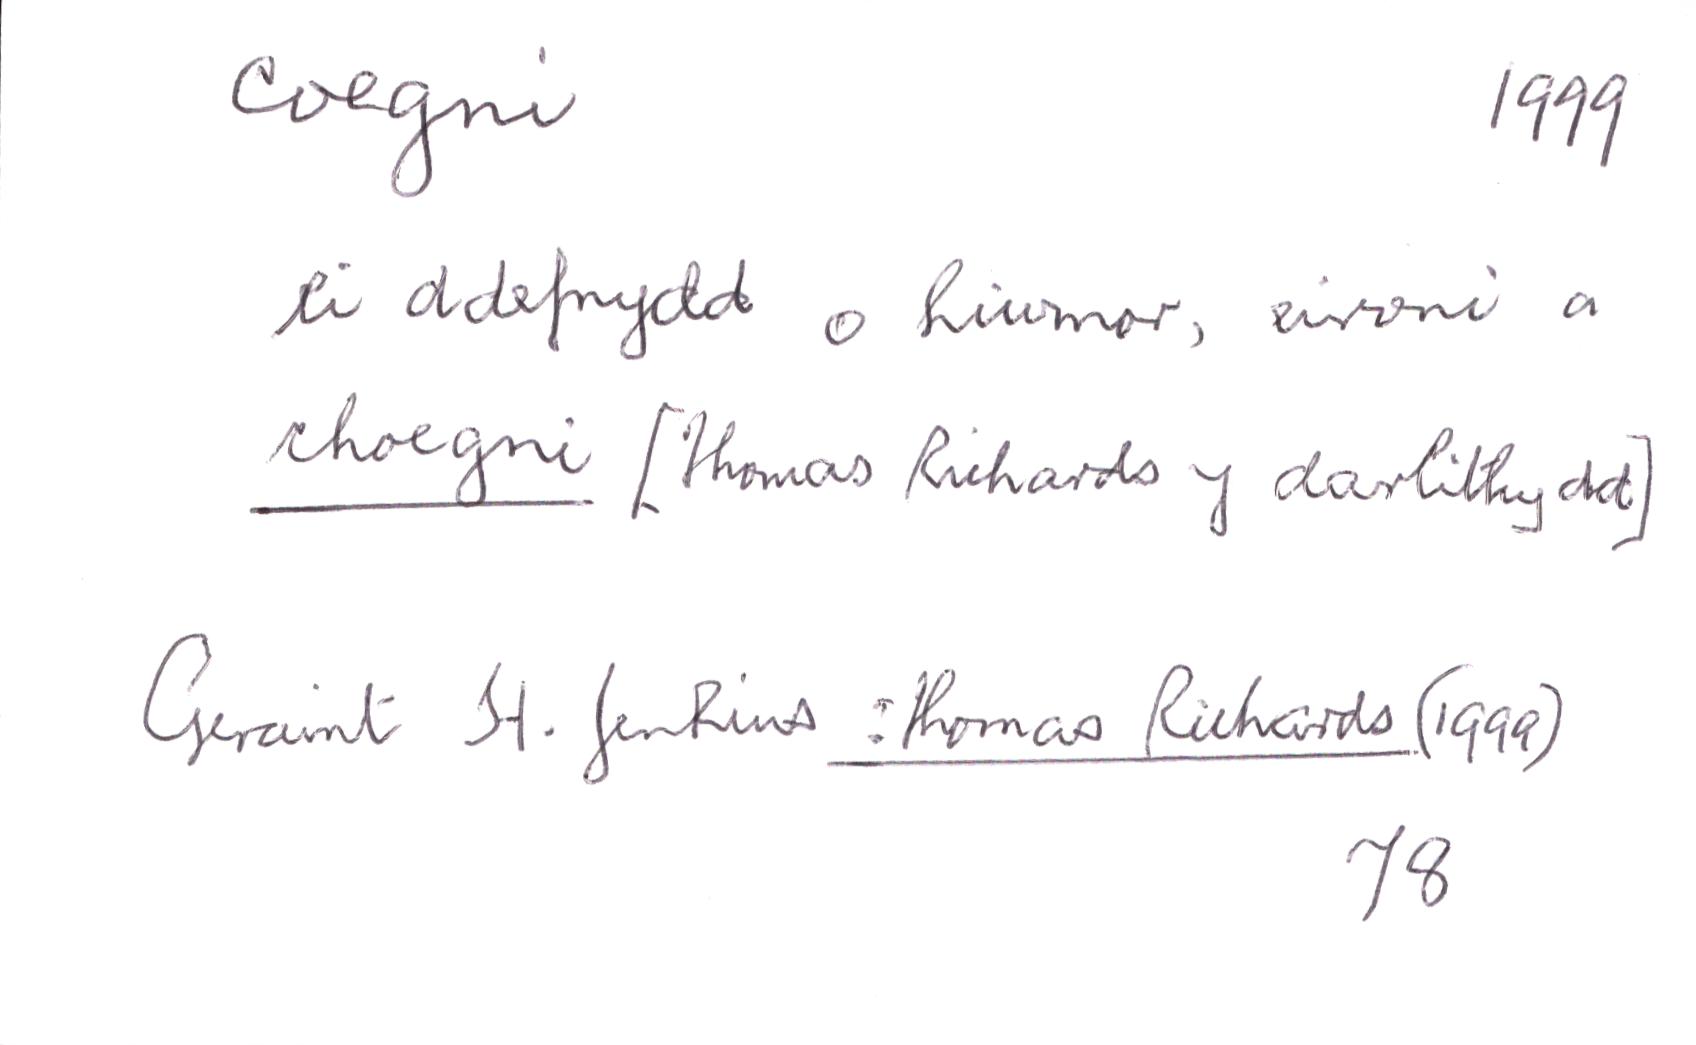 coegni 1999
ei ddefnydd o hiwmor, eironi a
choegni [Thomas Richards y darlithydd]
Geraint H. Jenkins : Thomas Richards (1999)
78